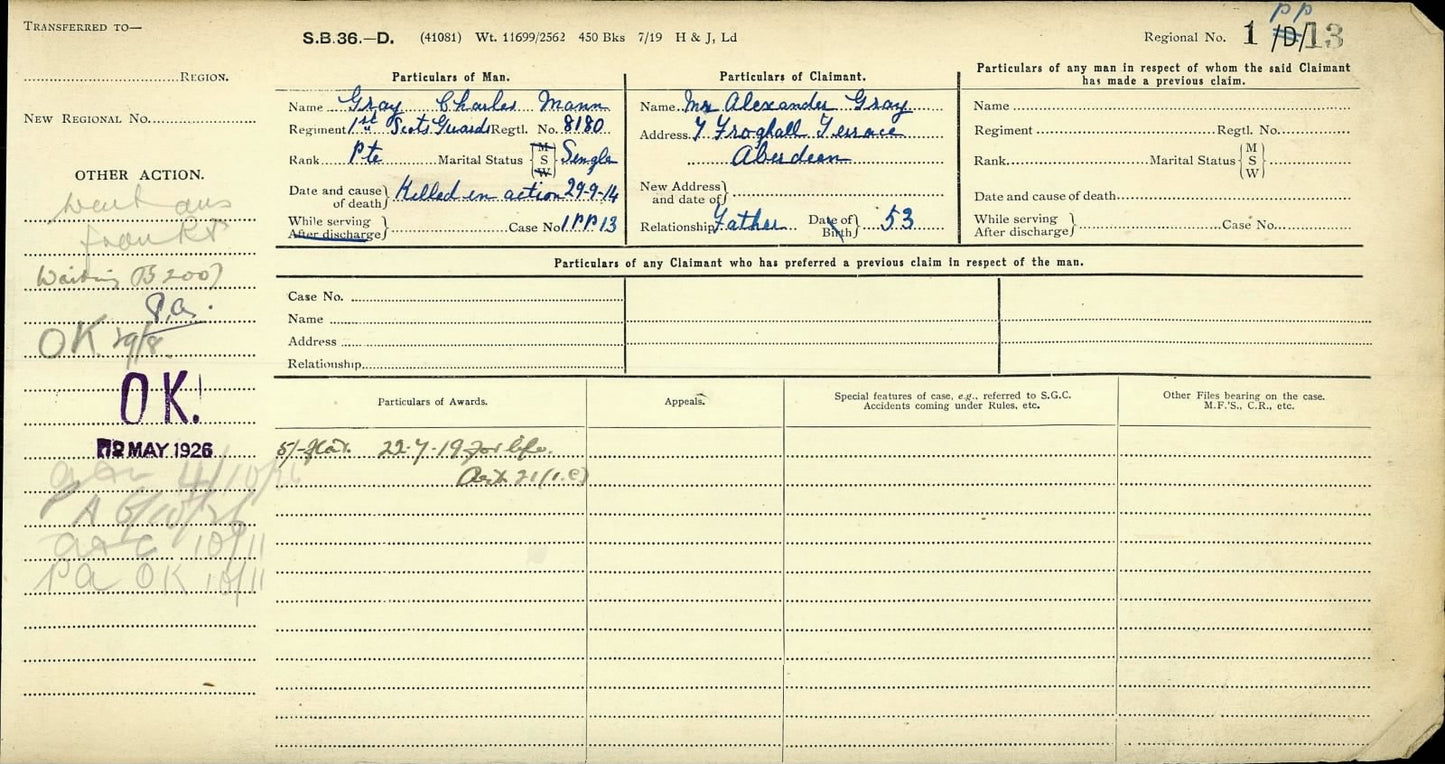 TRANSFERRED TO—
REGION.
NEW REGIONAL No.
OTHER ACTION.
Waiting
P.A.
OK 29/8
OK!
MAY 1926
4/10/26
PA 6/10/26
10/11
PA OK 10/11
S.B.36.—D. (41081) Wt. 11699/2562 450 Bks 7/19 H & J, Ld
Regional No. 1 /D/ PP 13
Particulars of Man.
Name Gray Charles Mann
Regiment 1st Scots Guards Regtl. No. 8180
Rank Pte Marital Status M S W Single
Date and cause of death Killed in action 29-9-14
While serving
After discharge Case No 1PP13
Particulars of Claimant.
Name Mr Alexander Gray
Address 7 Froghall Terrace
Aberdeen
New Address and date of
Relationship Father Date of Birth 53
Particulars of any man in respect of whom the said Claimant
has made a previous claim.
Name
Regiment Regtl. No.
Rank Marital Status M S W
Date and cause of death
While serving
After discharge Case No.
Particulars of any Claimant who has preferred a previous claim in respect of the man.
Case No.
Name
Address
Relationship
Particulars of Awards.
5/- flat. 22-7-19 for life.
Art. 21(1.C)
Appeals.
Special features of case, e.g., referred to S.G.C.
Accidents coming under Rules, etc.
Other Files bearing on the case.
M.F.'S., C.R., etc.